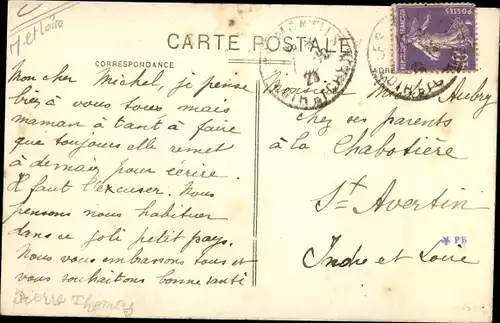 M. et Loire
CARTE POSTALE
CORRESPONDANCE
Mon cher Michel, je pense
bien a vous tous mais
maman à tant à faire
que toujours elle remet
à demain pour écrire.
Il faut l'excuser. Nous
pensons nous habituer
dans ce joli petit pays.
Nous vous embrassons tous et
vous souhaitons bonne santé
Pierre Thomas
POSTES
Monsieur Aubry
chez ses parents
à la Chabotière
St Avertin
Indre et Loire
PB